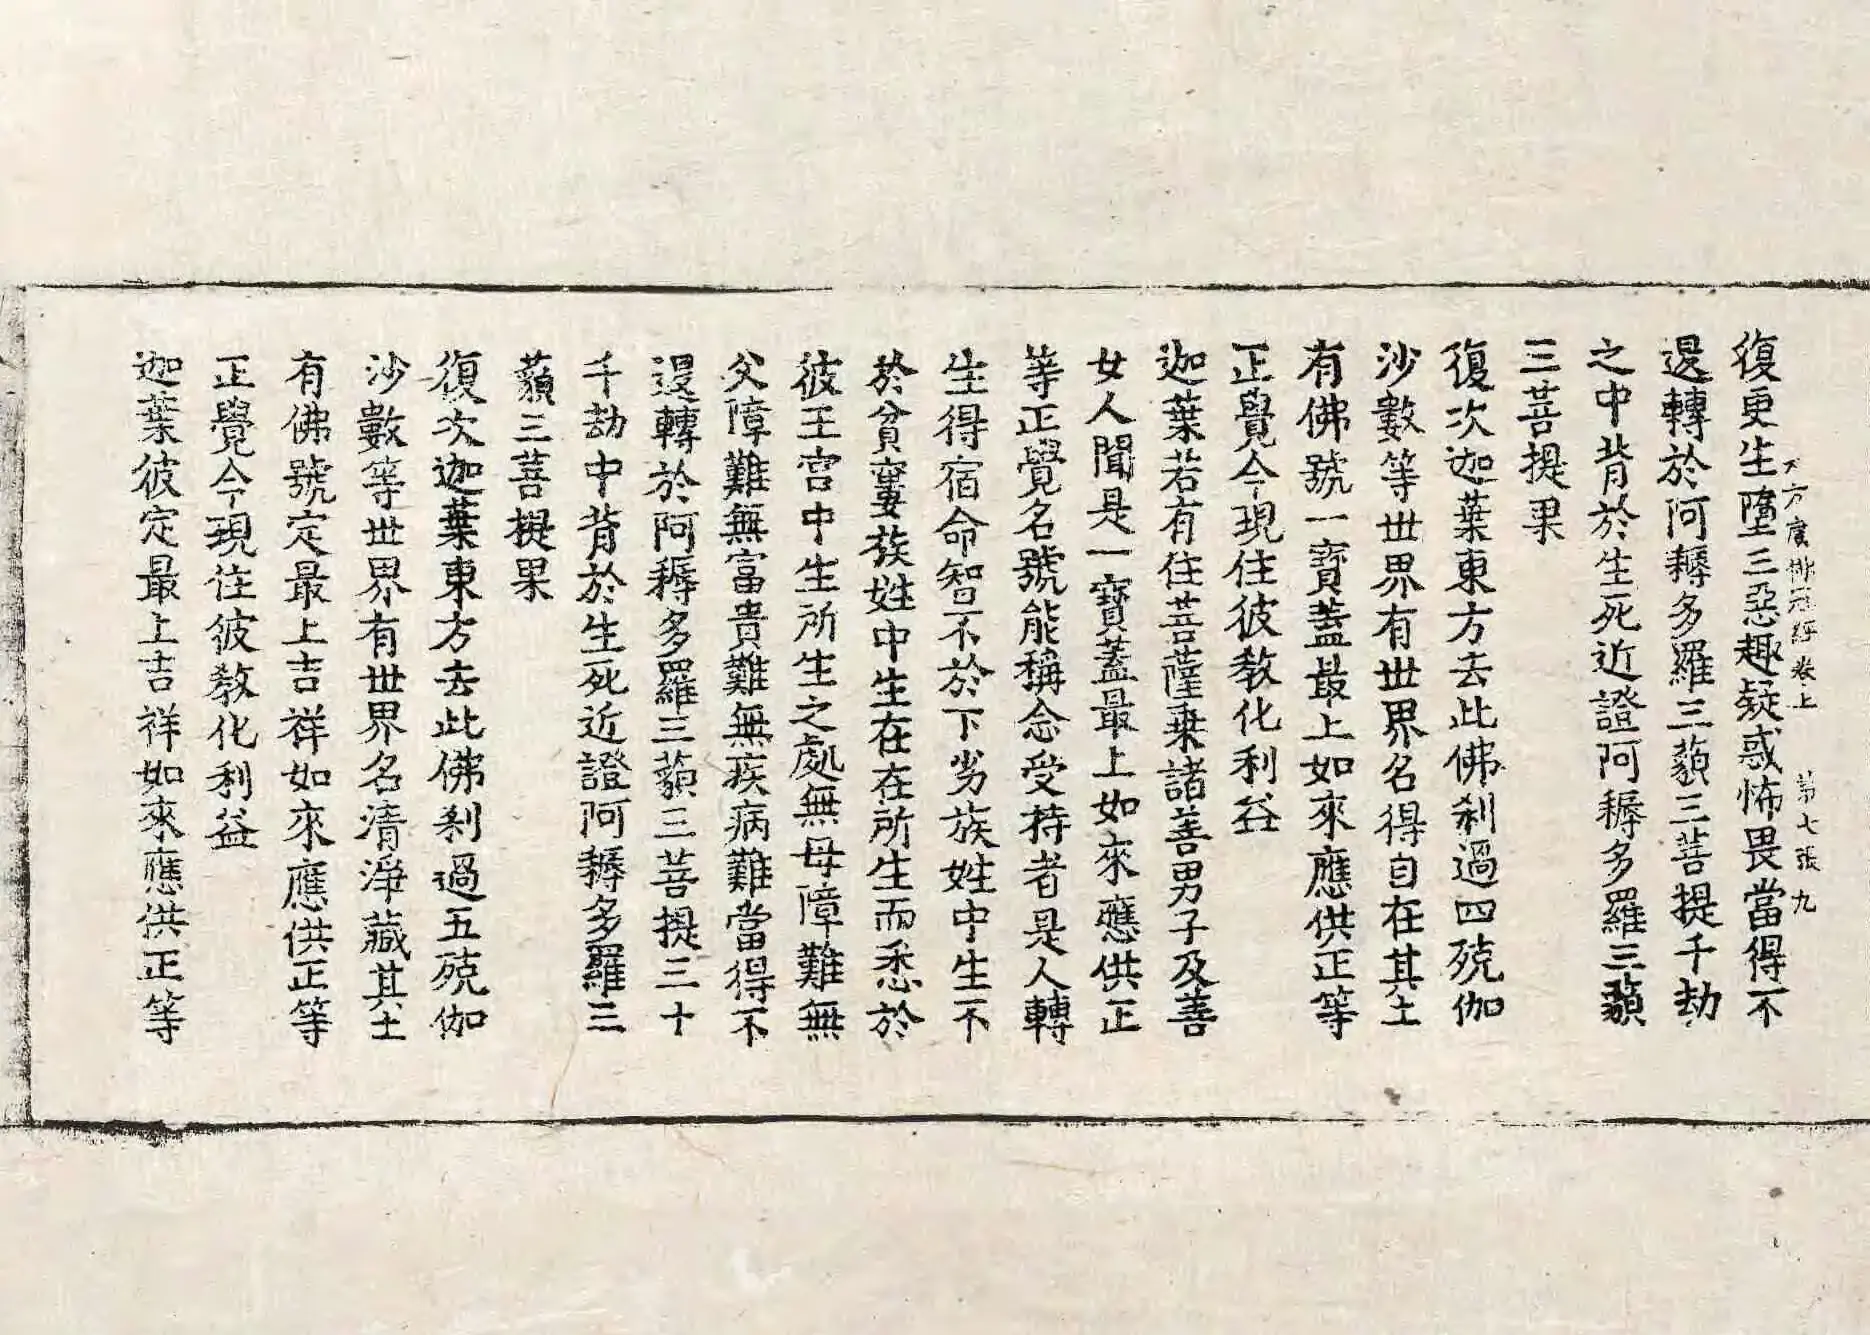 大方廣佛冠經卷上 第七張 九
復更生墮三惡趣疑惑怖畏當得不
退轉於阿耨多羅三藐三菩提千劫
之中背於生死近證阿耨多羅三藐
三菩提果
復次迦葉東方去此佛刹過四殑伽
沙數等世界有世界名得自在其土
有佛號一寶蓋最上如來應供正等
正覺今現住彼教化利益
迦葉若有住菩薩乘諸善男子及善
女人聞是一寶蓋最上如來應供正
等正覺名號能稱念受持者是人轉
生得宿命智不於下劣族姓中生不
於貧窶族姓中生在在所生而悉於
彼王宮中生所生之處無母障難無
父障難無富貴難無疾病難當得不
退轉於阿耨多羅三藐三菩提三十
千劫中背於生死近證阿耨多羅三
藐三菩提果
復次迦葉東方去此佛刹過五殑伽
沙數等世界有世界名清淨藏其土
有佛號定最上吉祥如來應供正等
正覺今現住彼教化利益
迦葉彼定最上吉祥如來應供正等